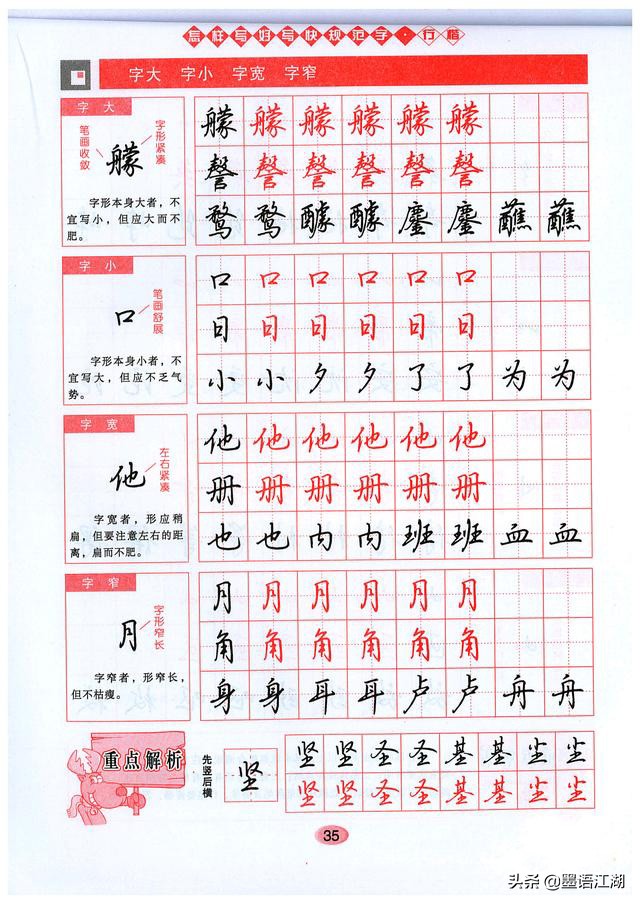 怎样写好写快规范字·行楷
字大 字小 字宽 字窄
字大
笔画收敛
艨
字形紧凑
字形本身大者，不
宜写小，但应大而不
肥。
艨 艨 艨 艨 艨 艨
謦 謦 謦 謦 謦 謦
鹜 鹜 醵 醵 鏖 鏖 蘸 蘸
字小
口
笔画舒展
字形本身小者，不
宜写大，但应不乏气
势。
口 口 口 口 口 口
日 日 日 日 日 日
小 小 夕 夕 了 了 为 为
字宽
他
左右紧凑
字宽者，形应稍
扁，但要注意左右的距
离，扁而不肥。
他 他 他 他 他 他
册 册 册 册 册 册
也 也 内 内 班 班 血 血
字窄
月
字形窄长
字窄者，形窄长，
但不枯瘦。
月 月 月 月 月 月
角 角 角 角 角 角
身 身 耳 耳 卢 卢 舟 舟
重点解析
先竖后横
坚
坚 坚 圣 圣 基 基 尘 尘
坚 坚 圣 圣 基 基 尘 尘
35
头条 @墨语江湖